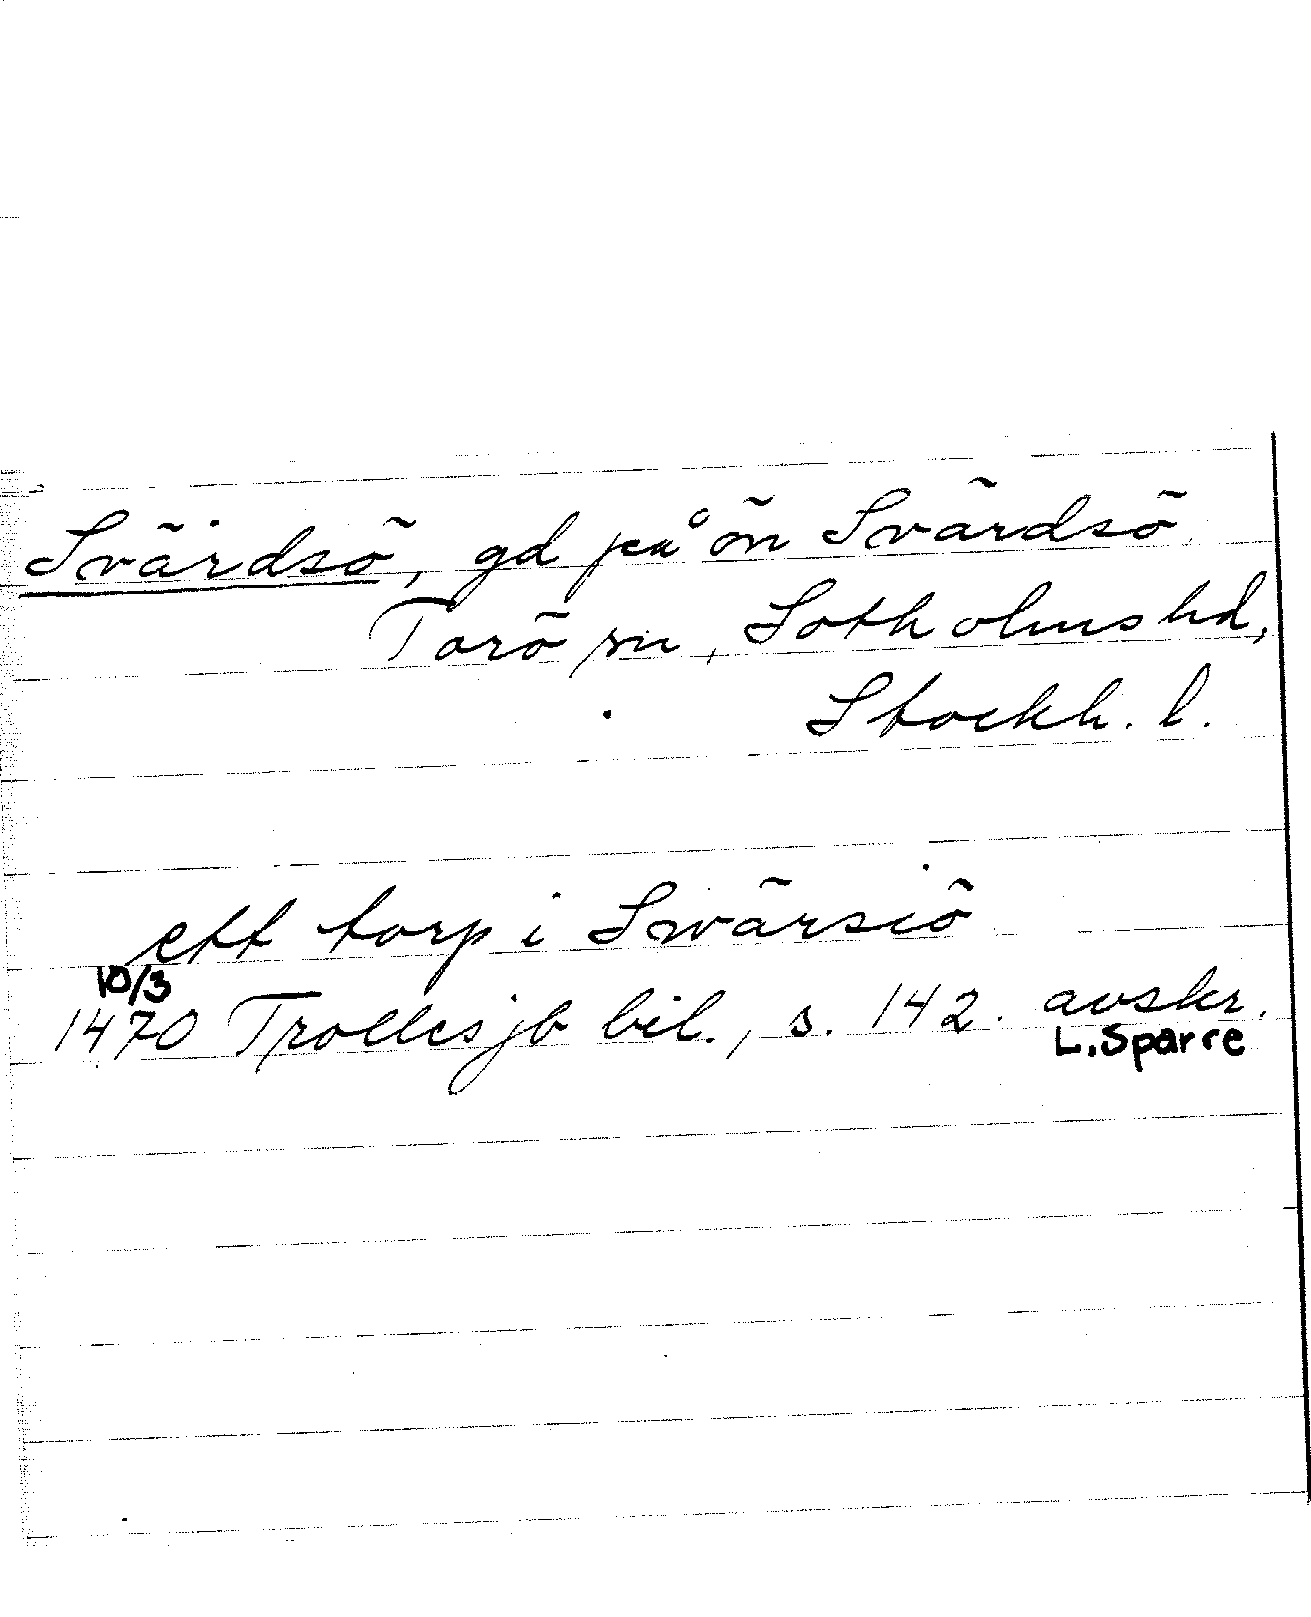 Svärdsö, gd på ön Svärdsö
Torö sn, Sotholms hd,
Stockh. l.
ett torp i Swärsiö
10/3
1470 Trollesjb bil., s. 142. avskr.
L. Sparre